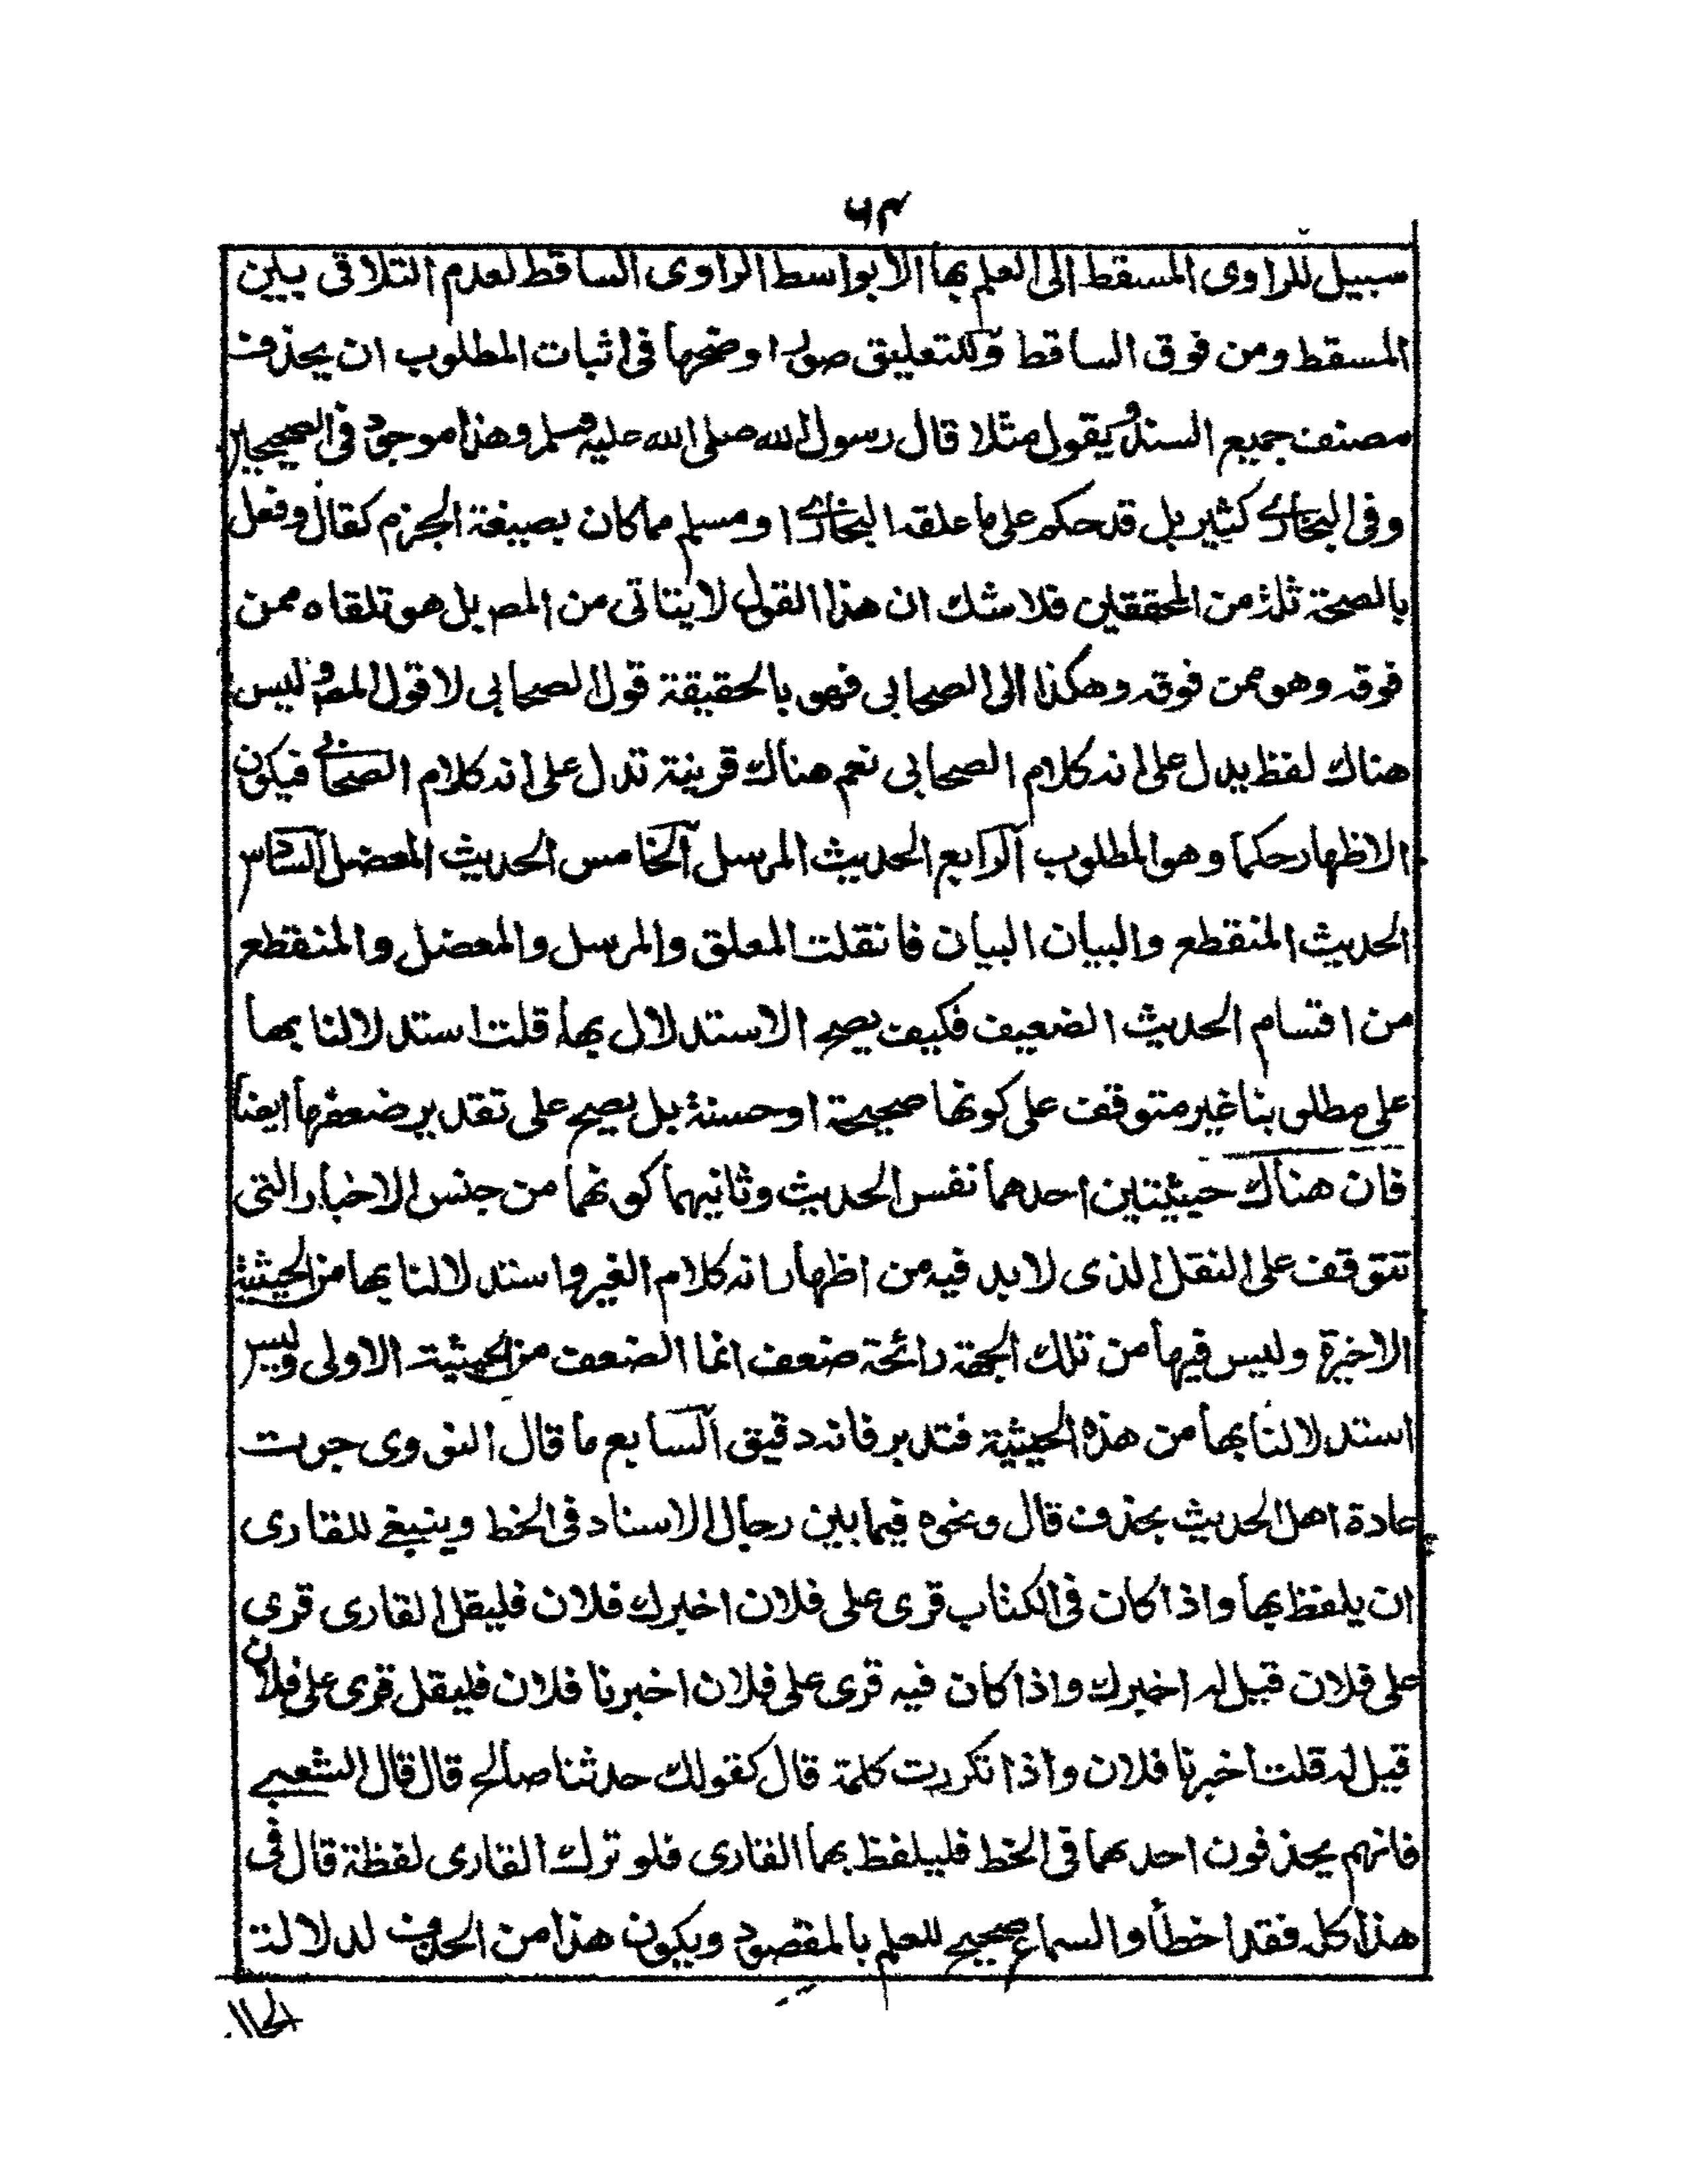 ۶۴
سبيل للراوى المسقط الى العلم بها الا بواسط الراوى الساقط لعدم التلاقى بين
المسقط ومن فوق الساقط وللتعليق صور اوضحها فى اثبات المطلوب ان يحذف
مصنف جميع السند ويقول مثلا قال رسول الله صلى الله عليه وسلم وهذا موجود فى الصحيحين
وفى البخارى كثير بل قد حكم على ما علقه البخارى او مسلم مما كان بصيغة الجزم كقال وفعل
بالصحة ثلة من المحققين فلا شك ان هذا القول لا يتاتى من المص بل هو تلقاه ممن
فوقه وهو ممن فوقه وهكذا الى الصحابى فهو بالحقيقة قول الصحابى لا قول المص وليس
هناك لفظ يدل على انه كلام الصحابى نعم هناك قرينة تدل على انه كلام الصحابى فيكون
الاظهار حكما وهو المطلوب الرابع الحديث المرسل الخامس الحديث المعضل السادس
الحديث المنقطع والبيان البيان فان قلت المعلق والمرسل والمعضل والمنقطع
من اقسام الحديث الضعيف فكيف يصح الاستدلال بها قلت استدلالنا بها
على مطلوبنا غير متوقف على كونها صحيحة او حسنة بل يصح على تقدير ضعفها ايضا
فان هناك حيثيتين احدهما نفس الحديث وثانيهما كونهما من جنس الاخبار التى
تتوقف على النقل الذى لا بد فيه من اظهار انه كلام الغير واستدلالنا بها من الحيثية
الاخيرة وليس فيها من تلك الجهة رائحة ضعف انما الضعف من الحيثية الاولى وليس
استدلالنا بها من هذه الحيثية فتدبر فانه دقيق السابع ما قال النووى جرت
عادة اهل الحديث بحذف قال ونحوه فيما بين رجال الاسناد فى الخط وينبغى للقارى
ان يلفظ بها واذا كان فى الكتاب قرى على فلان اخبرك فلان فليقل القارى قرى
على فلان قيل له اخبرك واذا كان فيه قرى على فلان اخبرنا فلان فليقل قرى على فلان
قيل له قلت اخبرنا فلان واذا تكررت كلمة قال كقولك حدثنا صالح قال قال الشعبى
فانهم يحذفون احدهما فى الخط فليلفظ بهما القارى فلو ترك القارى لفظة قال فى
هذا كله فقد اخطأ والسماع صحيح للعلم بالمقصود ويكون هذا من الحذف لدلالة
الحال